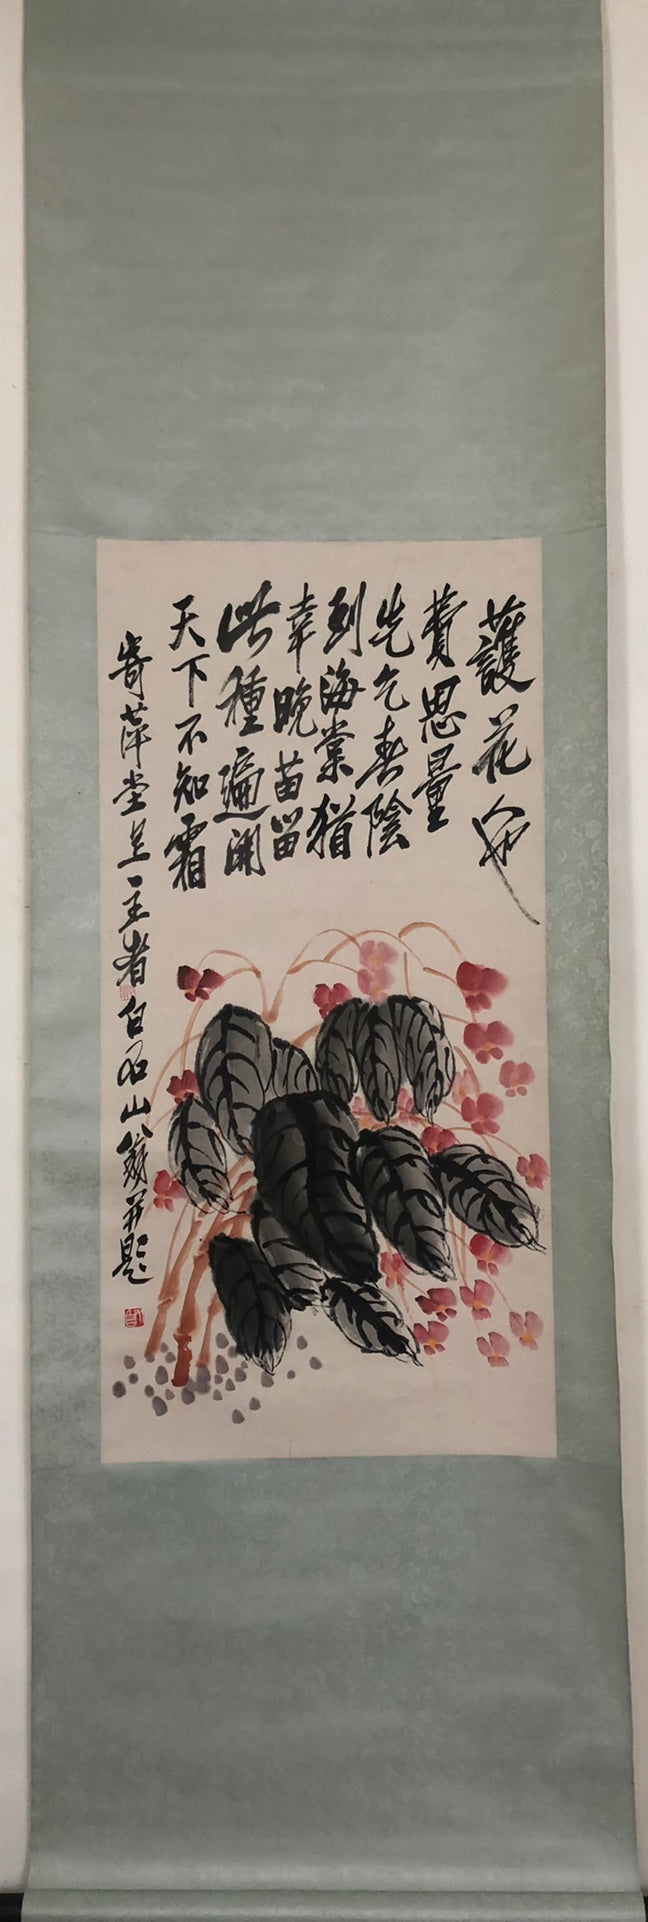 護花
費思量
先乞春陰
到海棠猶
幸晚苗留
此種遍開
天下不知霜
寄萍堂上主者白石山翁并題